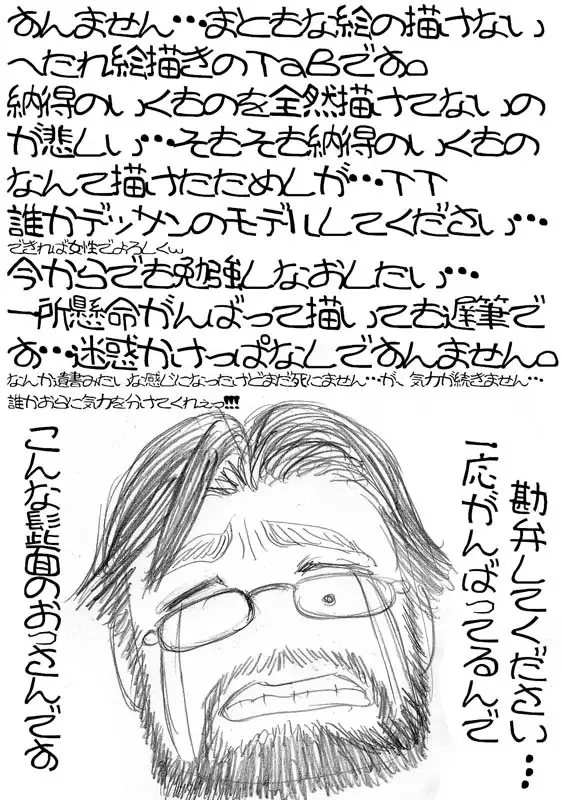 すんません…まともな絵の描けない
へたれ絵描きのTaBです。
納得のいくものを全然描けてないの
が悲しい…そもそも納得のいくもの
なんて描けたためしが…TT
誰かデッサンのモデルしてください…
できれば女性でよろしくｗ
今からでも勉強しなおしたい…
一所懸命がんばって描いても遅筆で
す…迷惑かけっぱなしですんません。
なんか遺書みたいな感じになったけどまだ死にません…が、気力が続きません…
誰かおらに気力を分けてくれぇっ!!!
勘弁してください…
一応がんばってるんで
こんな髭面のおっさんです